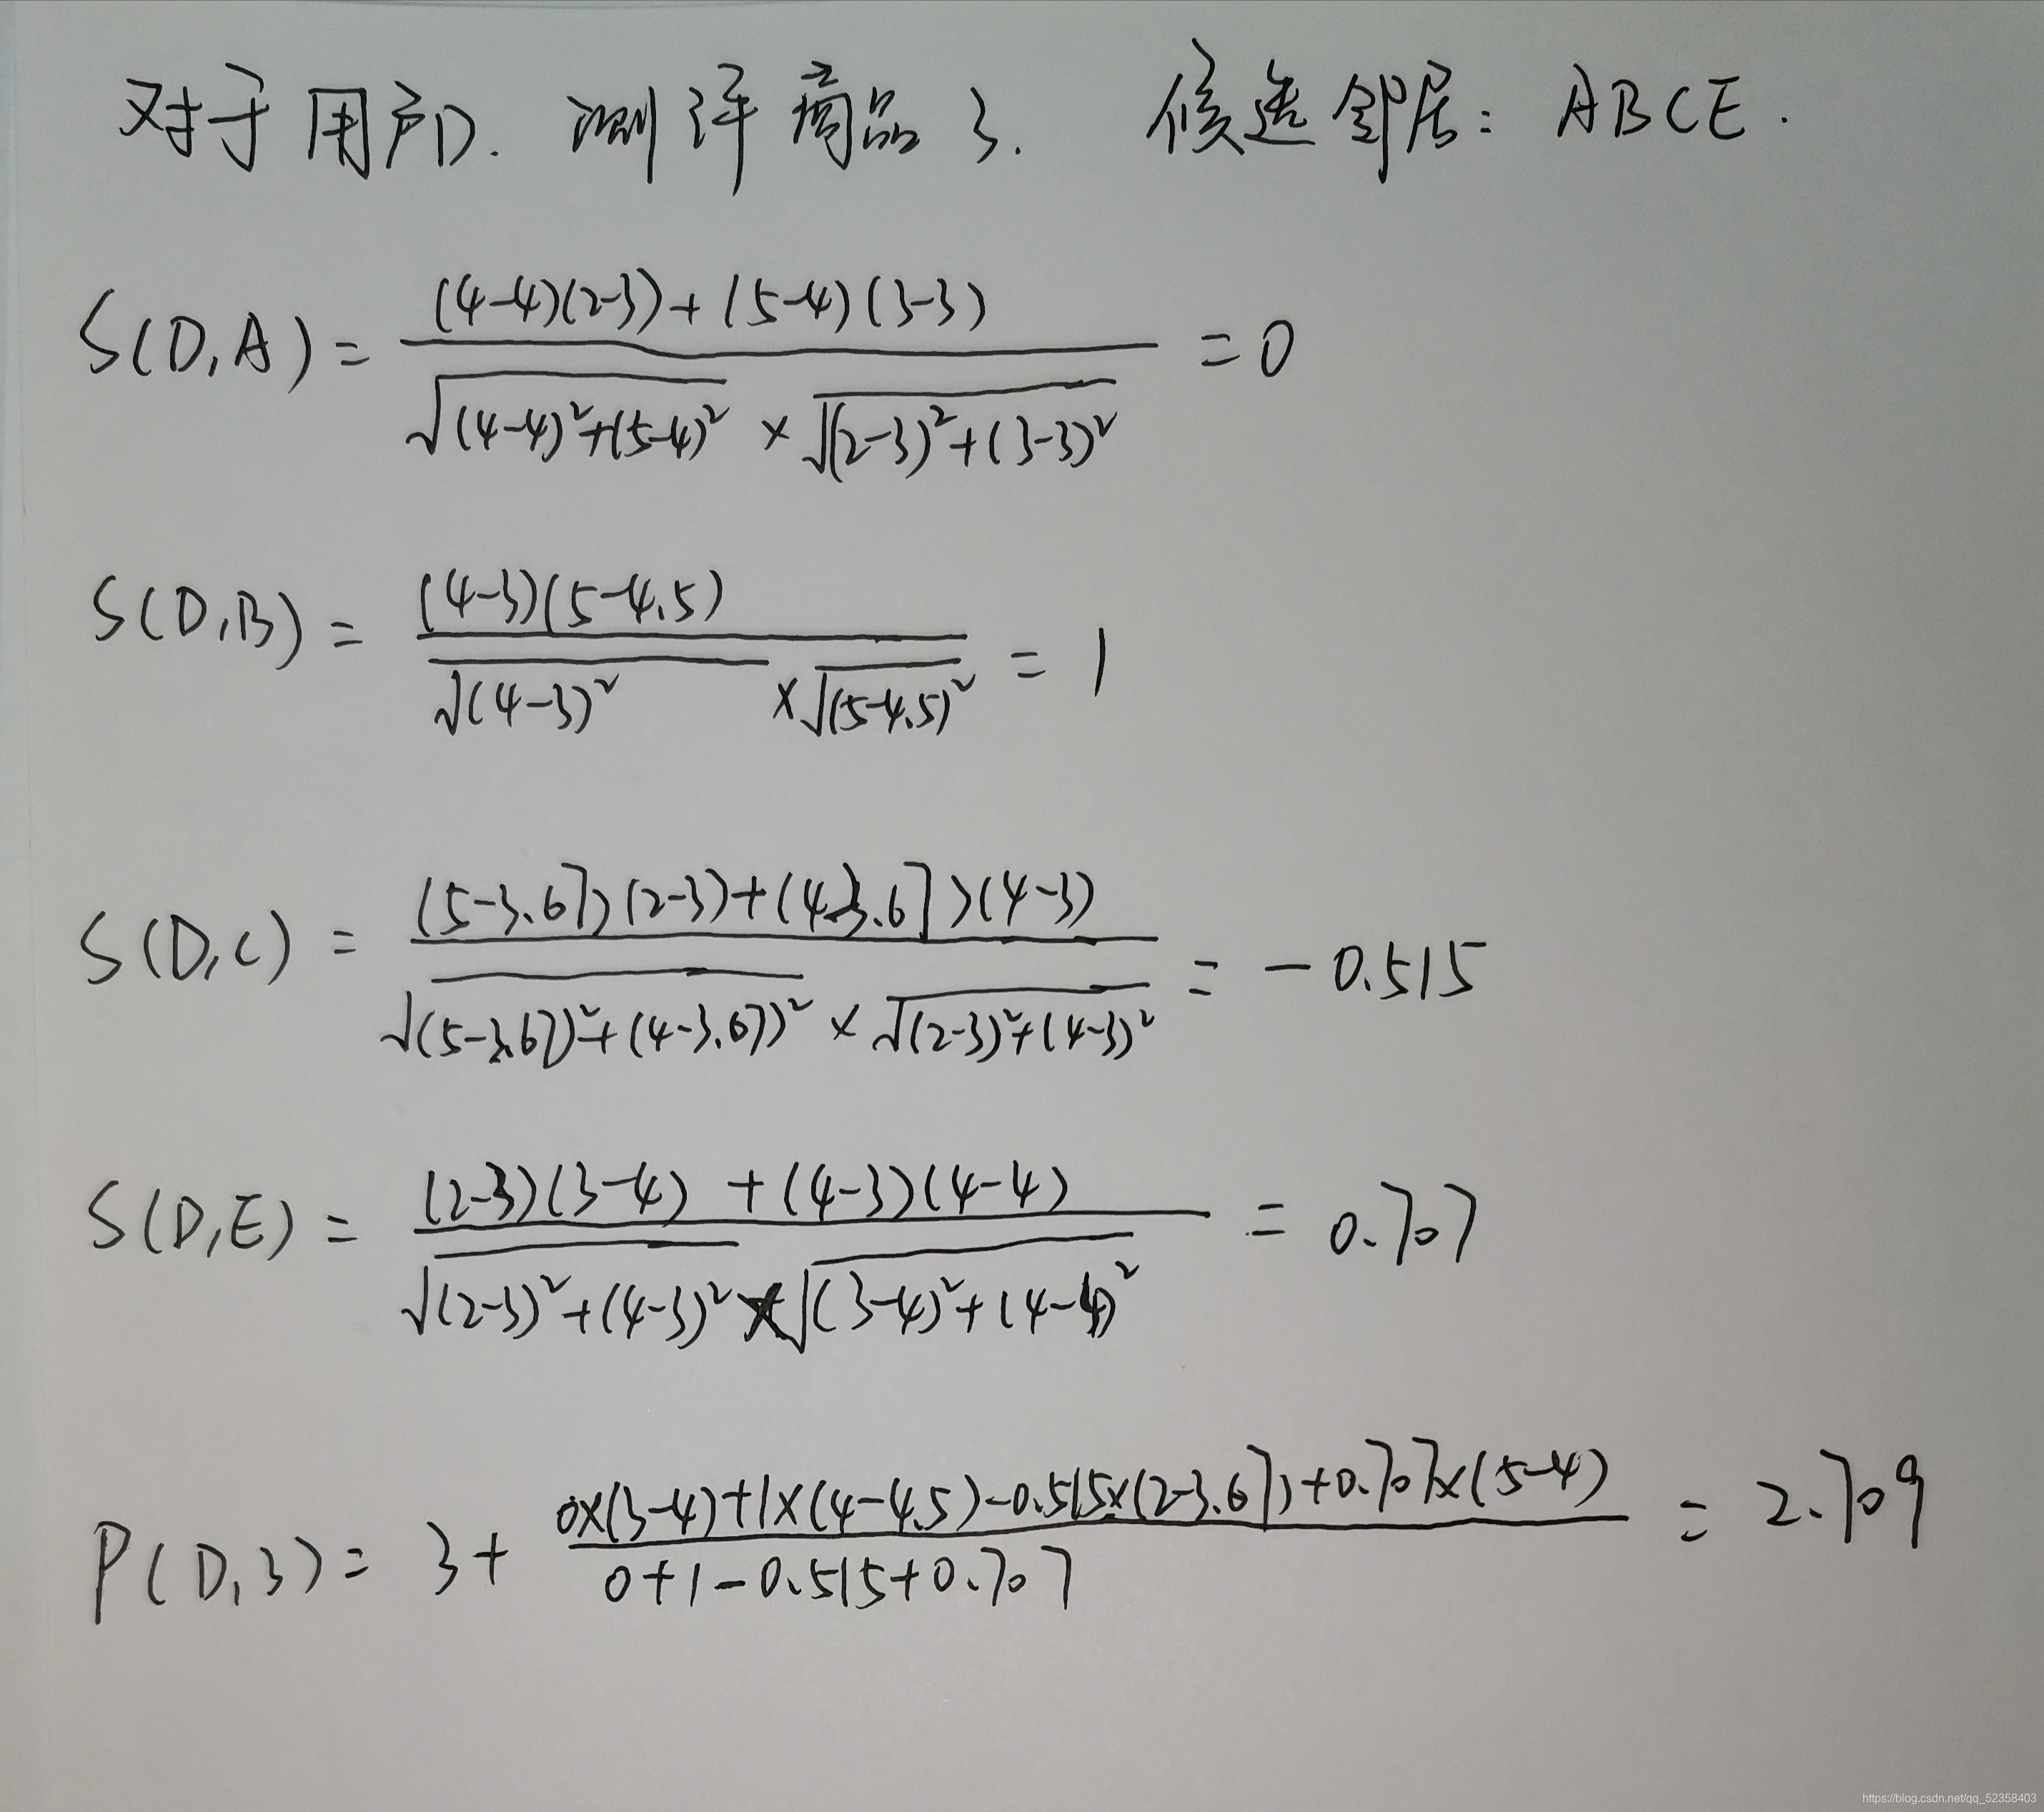 对于用户D. 测评商品3. 候选邻居: ABCE.
S(D,A) = \frac{(4-4)(2-3)+(5-4)(3-3)}{\sqrt{(4-4)²+(5-4)²} × \sqrt{(2-3)²+(3-3)²}} = 0
S(D,B) = \frac{(4-3)(5-4.5)}{\sqrt{(4-3)²} × \sqrt{(5-4.5)²}} = 1
S(D,C) = \frac{(5-3.67)(2-3)+(4-3.67)(4-3)}{\sqrt{(5-3.67)²+(4-3.67)²} × \sqrt{(2-3)²+(4-3)²}} = -0.515
S(D,E) = \frac{(2-3)(3-4)+(4-3)(4-4)}{\sqrt{(2-3)²+(4-3)²} × \sqrt{(3-4)²+(4-4)²}} = 0.707
P(D,3) = 3+ \frac{0×(3-4)+1×(4-4.5)-0.515×(2-3.67)+0.707×(5-4)}{0+1-0.515+0.707} = 2.709
https://blog.csdn.net/qq_52358403